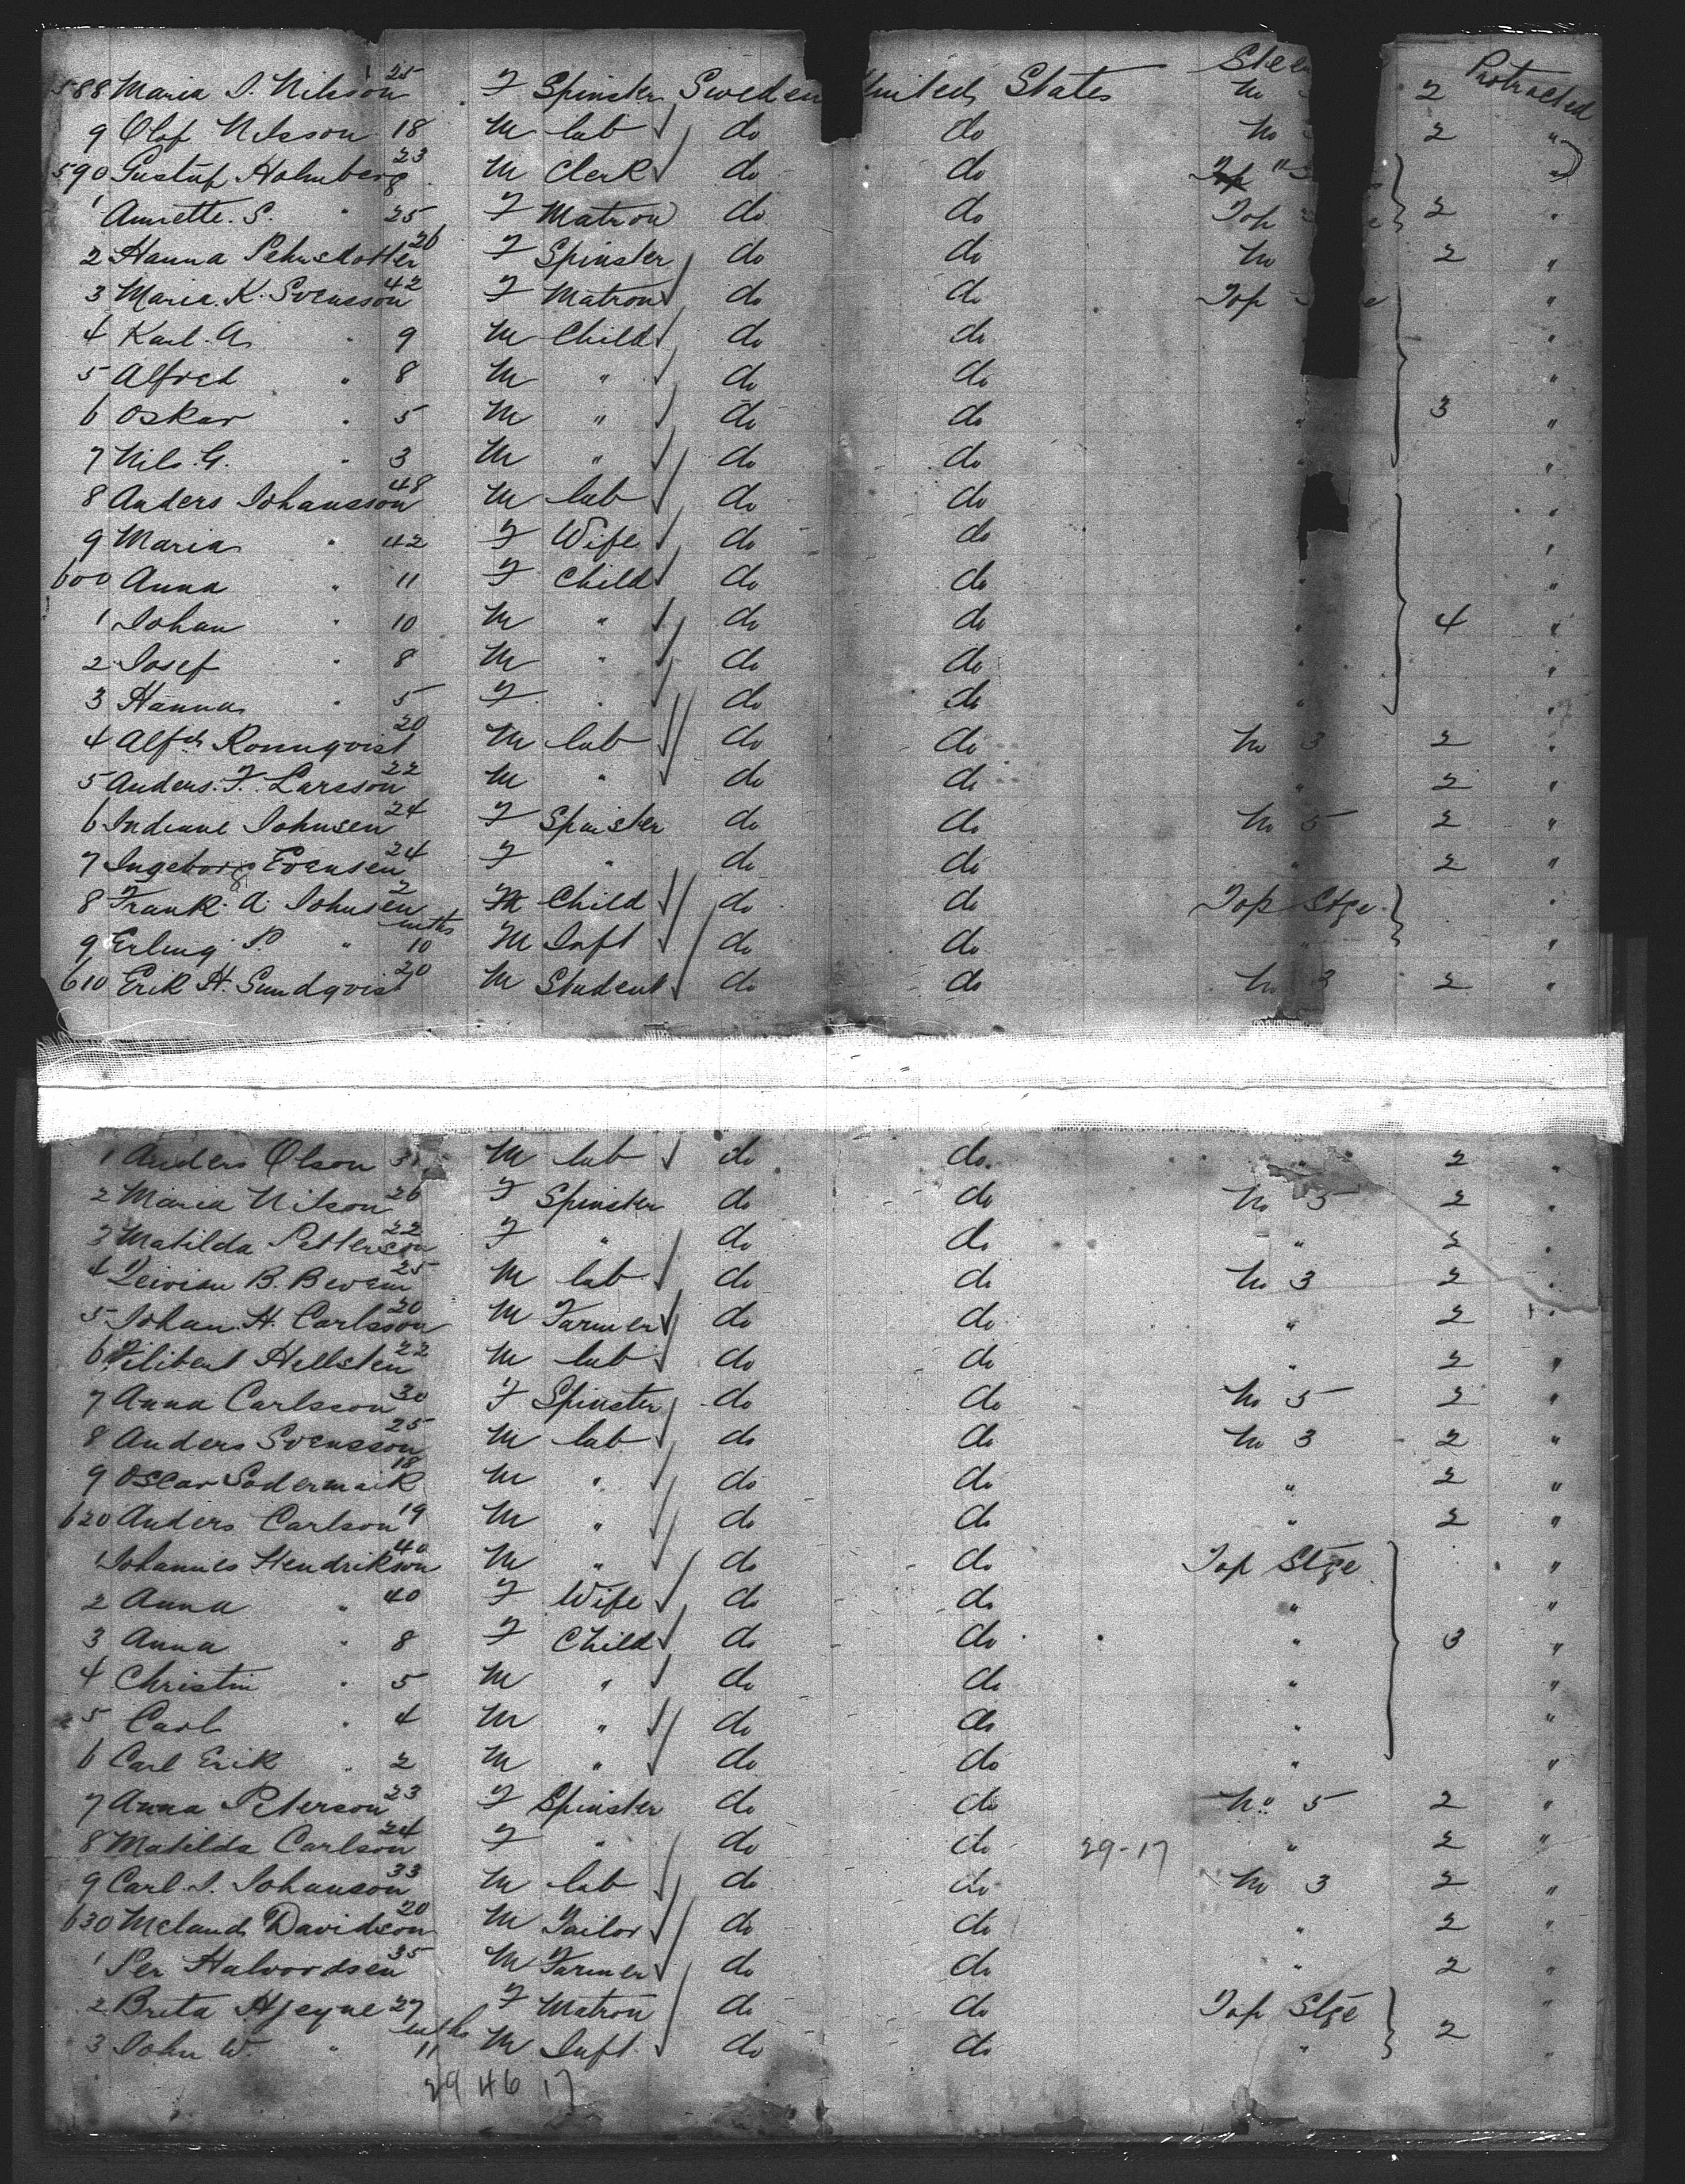 588 Maria S. Nilsson 25 F Spinster Sweden United States Steer No 2 Protracted
9 Olof Nilsson 18 M lab do do No 2 "
590 Gustuf Holmberg 23 M Clerk do do "
1 Annette. S. " 25 F Matron do do Top 2 "
2 Hanna Pehrsdotter 26 F Spinster do do No 2 "
3 Maria. K. Svensson 42 F Matron do do Top "
4 Karl. A. " 9 M Child do do "
5 Alfred " 8 M " do do "
6 Oskar " 5 M " do do " 3 "
7 Nils. G. " 3 M " do do "
8 Anders Johansson 48 M lab do do "
9 Maria " 42 F Wife do do "
600 Anna " 11 F Child do do " "
1 Johan " 10 M " do do " 4 "
2 Josef " 8 M " do do " "
3 Hanna " 5 F " do do " "
4 Alfd Ronnqvist 20 M lab do do No 3 2 "
5 Anders. F. Larsson 22 M " do do " 2 "
6 Indiane Johnsen 24 F Spinster do do No 5 2 "
7 Ingeborg Evensen 24 F " do do " 2 "
8 Frank. A. Johnsen 2 M Child do do Top Stge "
9 Erling P. " mths 10 M Inft do do " "
610 Erik H. Sundqvist 20 M Student do do No 3 2 "
1 Anders Olson M lab do do " 2 "
2 Maria Nilson 26 F Spinster do do No 5 2 "
3 Matilda Petterson 22 F " do do " 2 "
4 B. 25 M lab do do No 3 2 "
5 Johan. H. Carlsson 20 M Farmer do do " 2 "
6 Hellsten 22 M lab do do " 2 "
7 Anna Carlsson 30 F Spinster do do No 5 2 "
8 Anders Svensson 25 M lab do do No 3 2 "
9 Oscar Sodermark 18 M " do do " 2 "
620 Anders Carlson 19 M " do do " 2 "
1 Johannes Hendrikson 40 M " do do Top Stge "
2 Anna " 40 F Wife do do " "
3 Anna " 8 F Child do do " 3 "
4 Christin " 5 M " do do " "
5 Carl " 4 M " do do " "
6 Carl Erik " 2 M " do do " "
7 Anna Peterson 23 F Spinster do do No 5 2 "
8 Matilda Carlson 24 F " do do 29-17 " 2 "
9 Carl. J. Johanson 33 M lab do do No 3 2 "
630 Davidson 20 M Tailor do do " 2 "
1 Per Halvordsen 35 M Farmer do do " 2 "
2 Brita 27 F Matron do do Top Stge "
3 John W. " mths 11 M Inft do do " 2 "
29 46 17